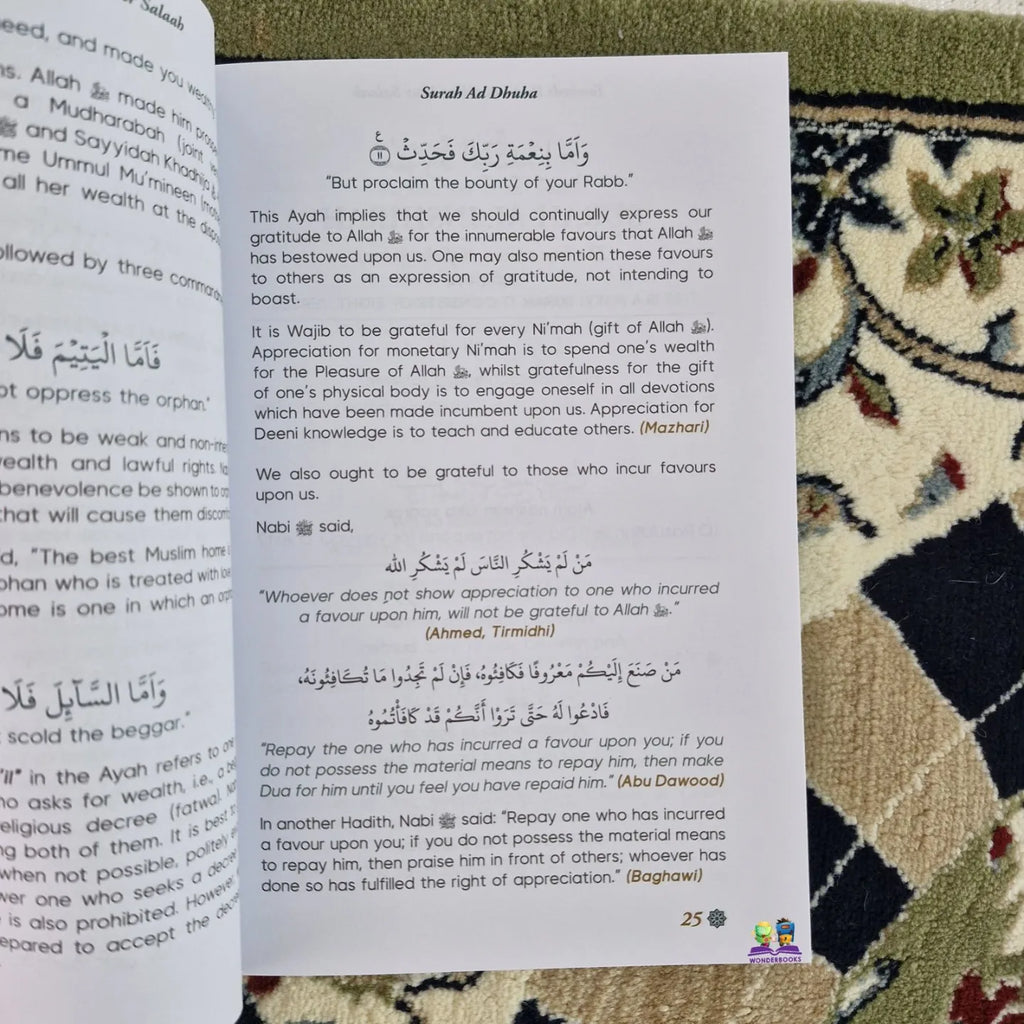 Salaah
eed, and made you wealthy
ns. Allah ﷻ made him
a Mudharabah (joint
ﷺ and Sayyidah Khadhija
me Ummul Mu'mineen
all her wealth at the
ollowed by three
فَاَمَّا الْيَتِيْمَ فَلَا
ot oppress the orphan."
ns to be weak and
ealth and lawful rights.
benevolence be shown to
that will cause them
d, "The best Muslim home
phan who is treated with
ome is one in which an
وَاَمَّا السَّآىِٕلَ فَلَا
scold the beggar."
in the Ayah refers to
ho asks for wealth, i.e., a
eligious decree (fatwa).
ng both of them. It is best
when not possible, politely
wer one who seeks a
is also prohibited. However,
epared to accept the
Surah Ad Dhuha
وَاَمَّا بِنِعْمَةِ رَبِّكَ فَحَدِّثْ ۝١١ ع
"But proclaim the bounty of your Rabb."
This Ayah implies that we should continually express our
gratitude to Allah ﷻ for the innumerable favours that Allah ﷻ
has bestowed upon us. One may also mention these favours
to others as an expression of gratitude, not intending to
boast.
It is Wajib to be grateful for every Ni'mah (gift of Allah ﷻ).
Appreciation for monetary Ni'mah is to spend one's wealth
for the Pleasure of Allah ﷻ, whilst gratefulness for the gift
of one's physical body is to engage oneself in all devotions
which have been made incumbent upon us. Appreciation for
Deeni knowledge is to teach and educate others. (Mazhari)
We also ought to be grateful to those who incur favours
upon us.
Nabi ﷺ said,
مَنْ لَمْ يَشْكُرِ النَّاسَ لَمْ يَشْكُرِ الله
"Whoever does not show appreciation to one who incurred
a favour upon him, will not be grateful to Allah ﷻ."
(Ahmed, Tirmidhi)
مَنْ صَنَعَ إِلَيْكُمْ مَعْرُوفًا فَكَافِئُوهُ، فَإِنْ لَمْ تَجِدُوا مَا تُكَافِئُونَهُ،
فَادْعُوا لَهُ حَتَّى تَرَوْا أَنَّكُمْ قَدْ كَافَأْتُمُوهُ
"Repay the one who has incurred a favour upon you; if you
do not possess the material means to repay him, then make
Dua for him until you feel you have repaid him." (Abu Dawood)
In another Hadith, Nabi ﷺ said: "Repay one who has incurred
a favour upon you; if you do not possess the material means
to repay him, then praise him in front of others; whoever has
done so has fulfilled the right of appreciation." (Baghawi)
25
WONDERBOOKS